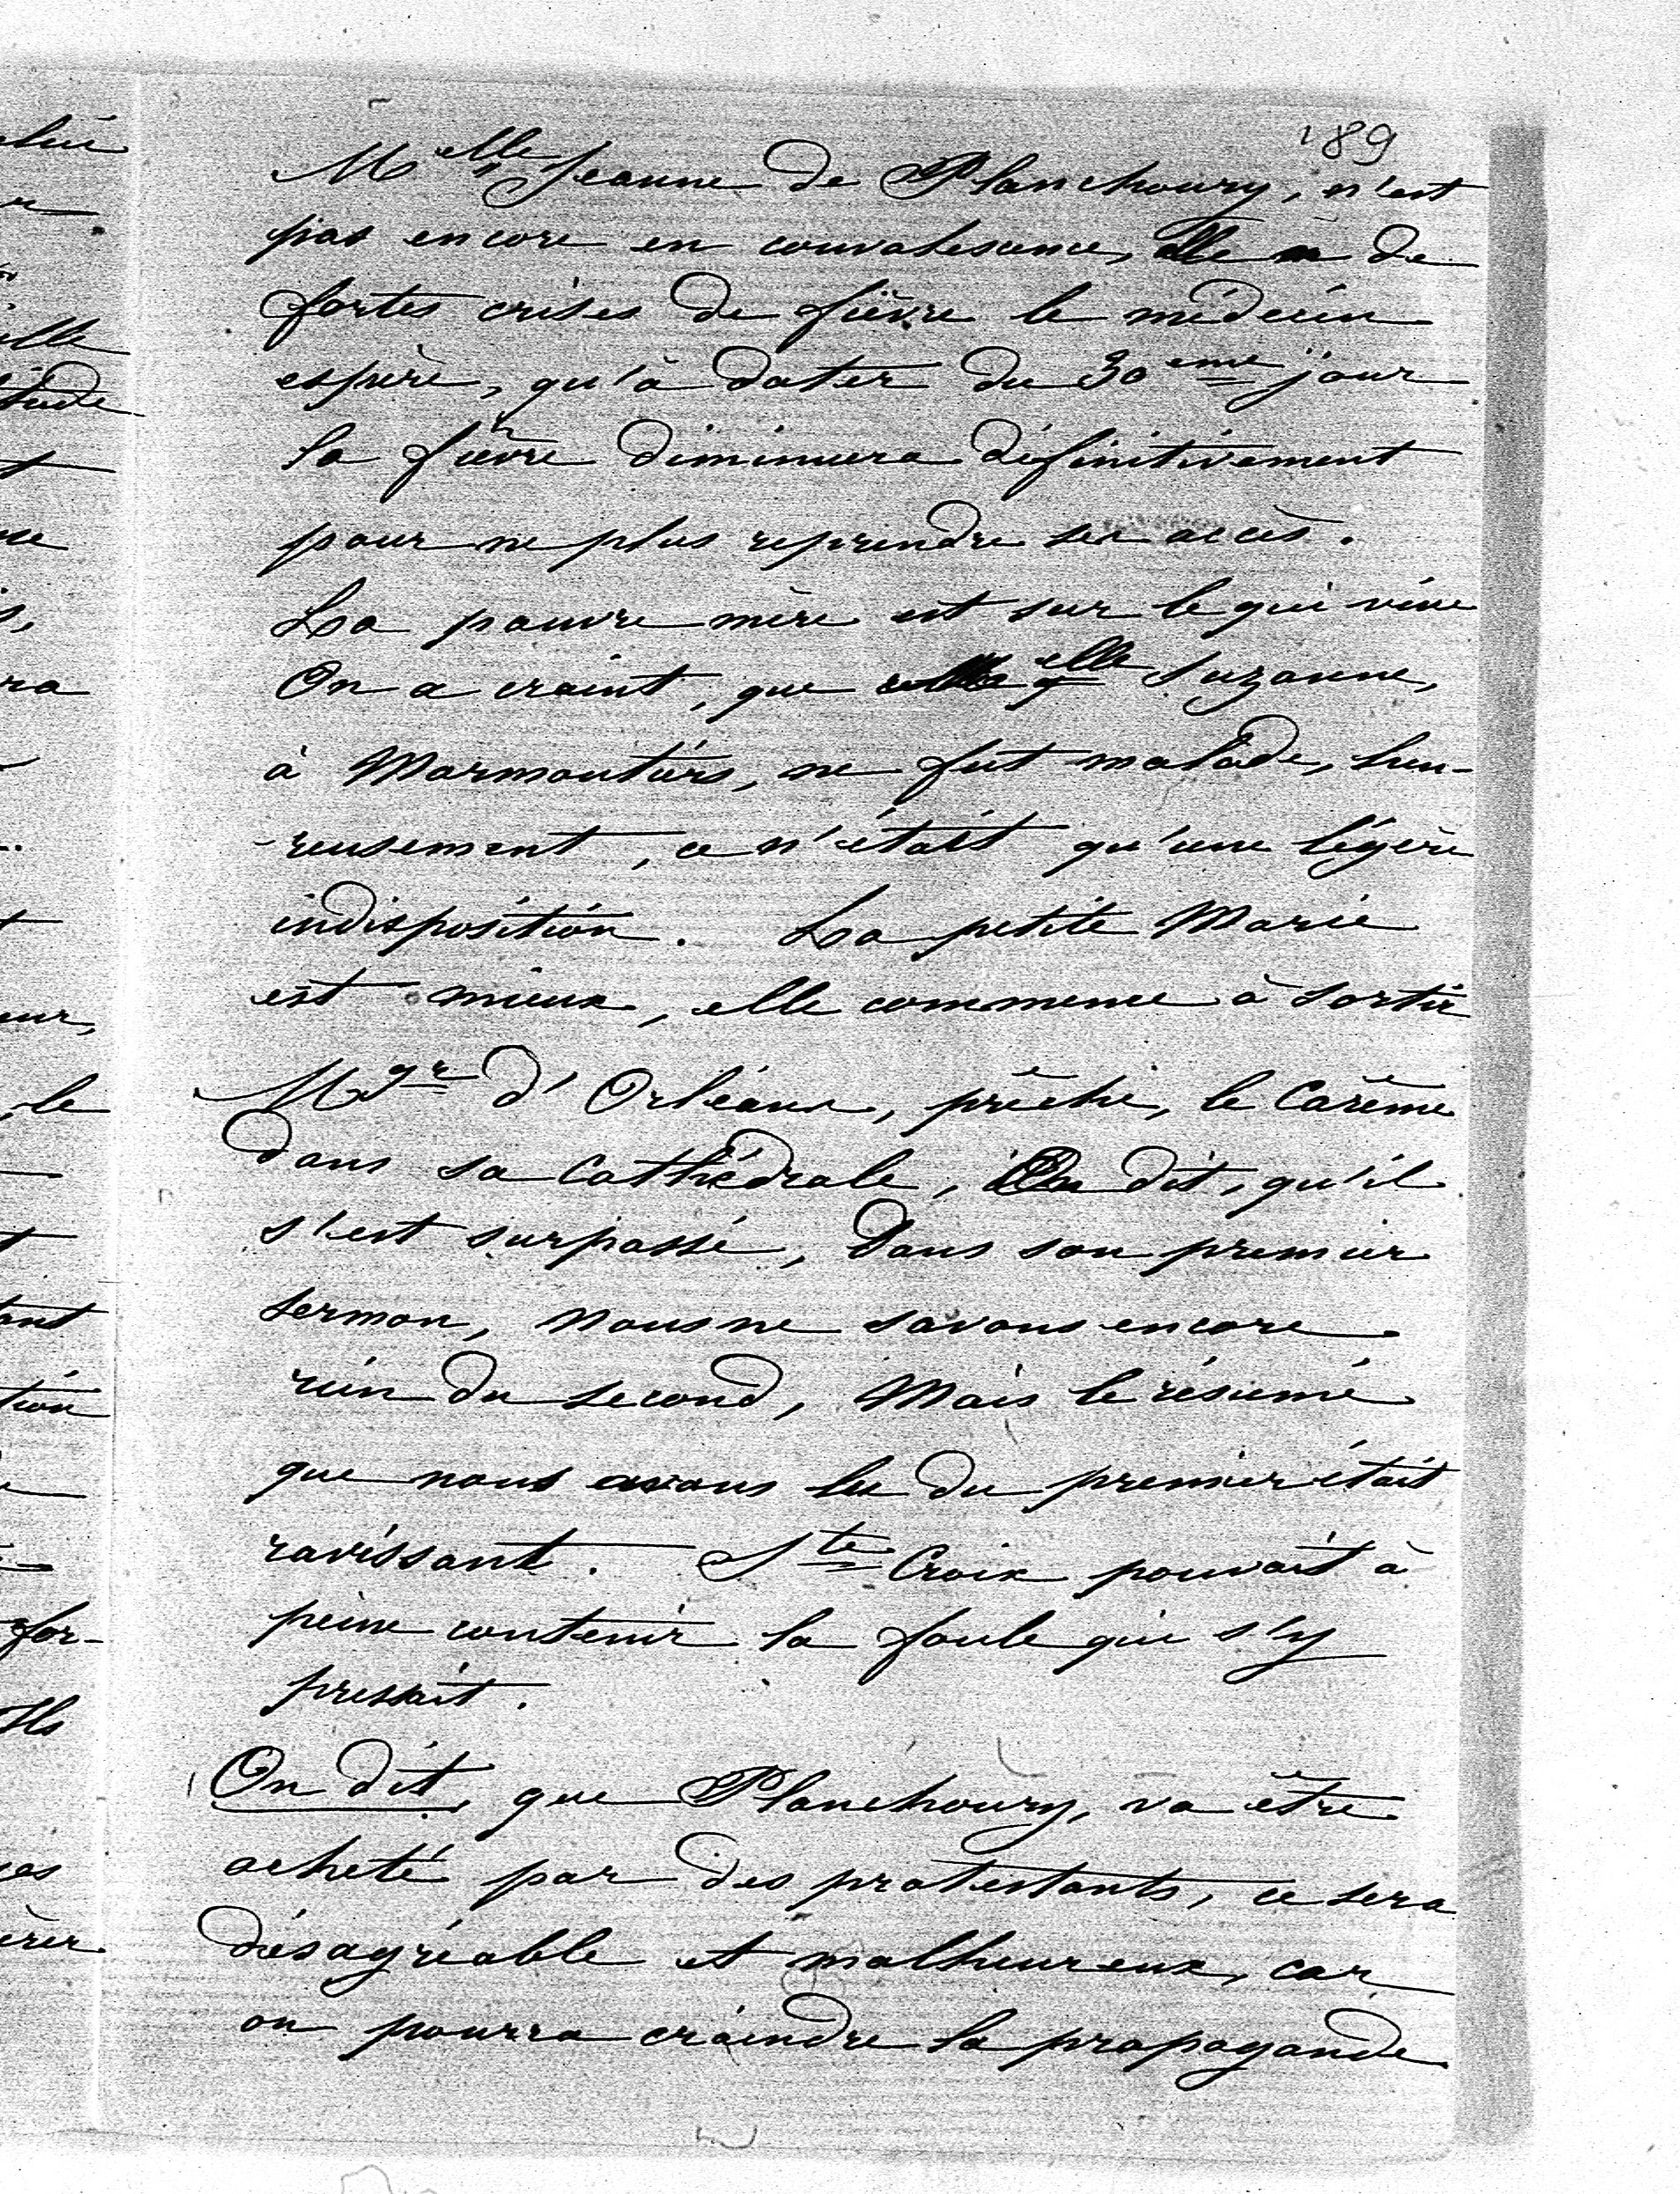 189
Melle Jeanne de Planchoury, n'est
pas encore en convalescence, elle a de
fortes crises de fièvre le médecin
espère, qu'à dater du 30eme jour
la fièvre diminuera définitivement
pour ne plus reprendre ses accès.
La pauvre mère est sur le qui vive
On a craint, que Melle Suzanne,
à Marmoutiers, ne fut malade, heu-
-reusement, ce n'était qu'une légère
indisposition. La petite Marie
est mieux, elle commence à sortir
Mgr d'Orléans, prêche, le Carême
dans sa Cathédrale, On dit, qu'il
s'est surpassé, dans son premier
sermon, nous ne savons encore
rien du second, Mais le résumé
que nous avons lu du premier était
ravissant. Ste Croix pouvait à
peine contenir la foule qui s'y
pressait.
On dit, que Planchoury, va être
acheté par des protestants, ce sera
désagréable et malheureux, car
on pourra craindre la propagande